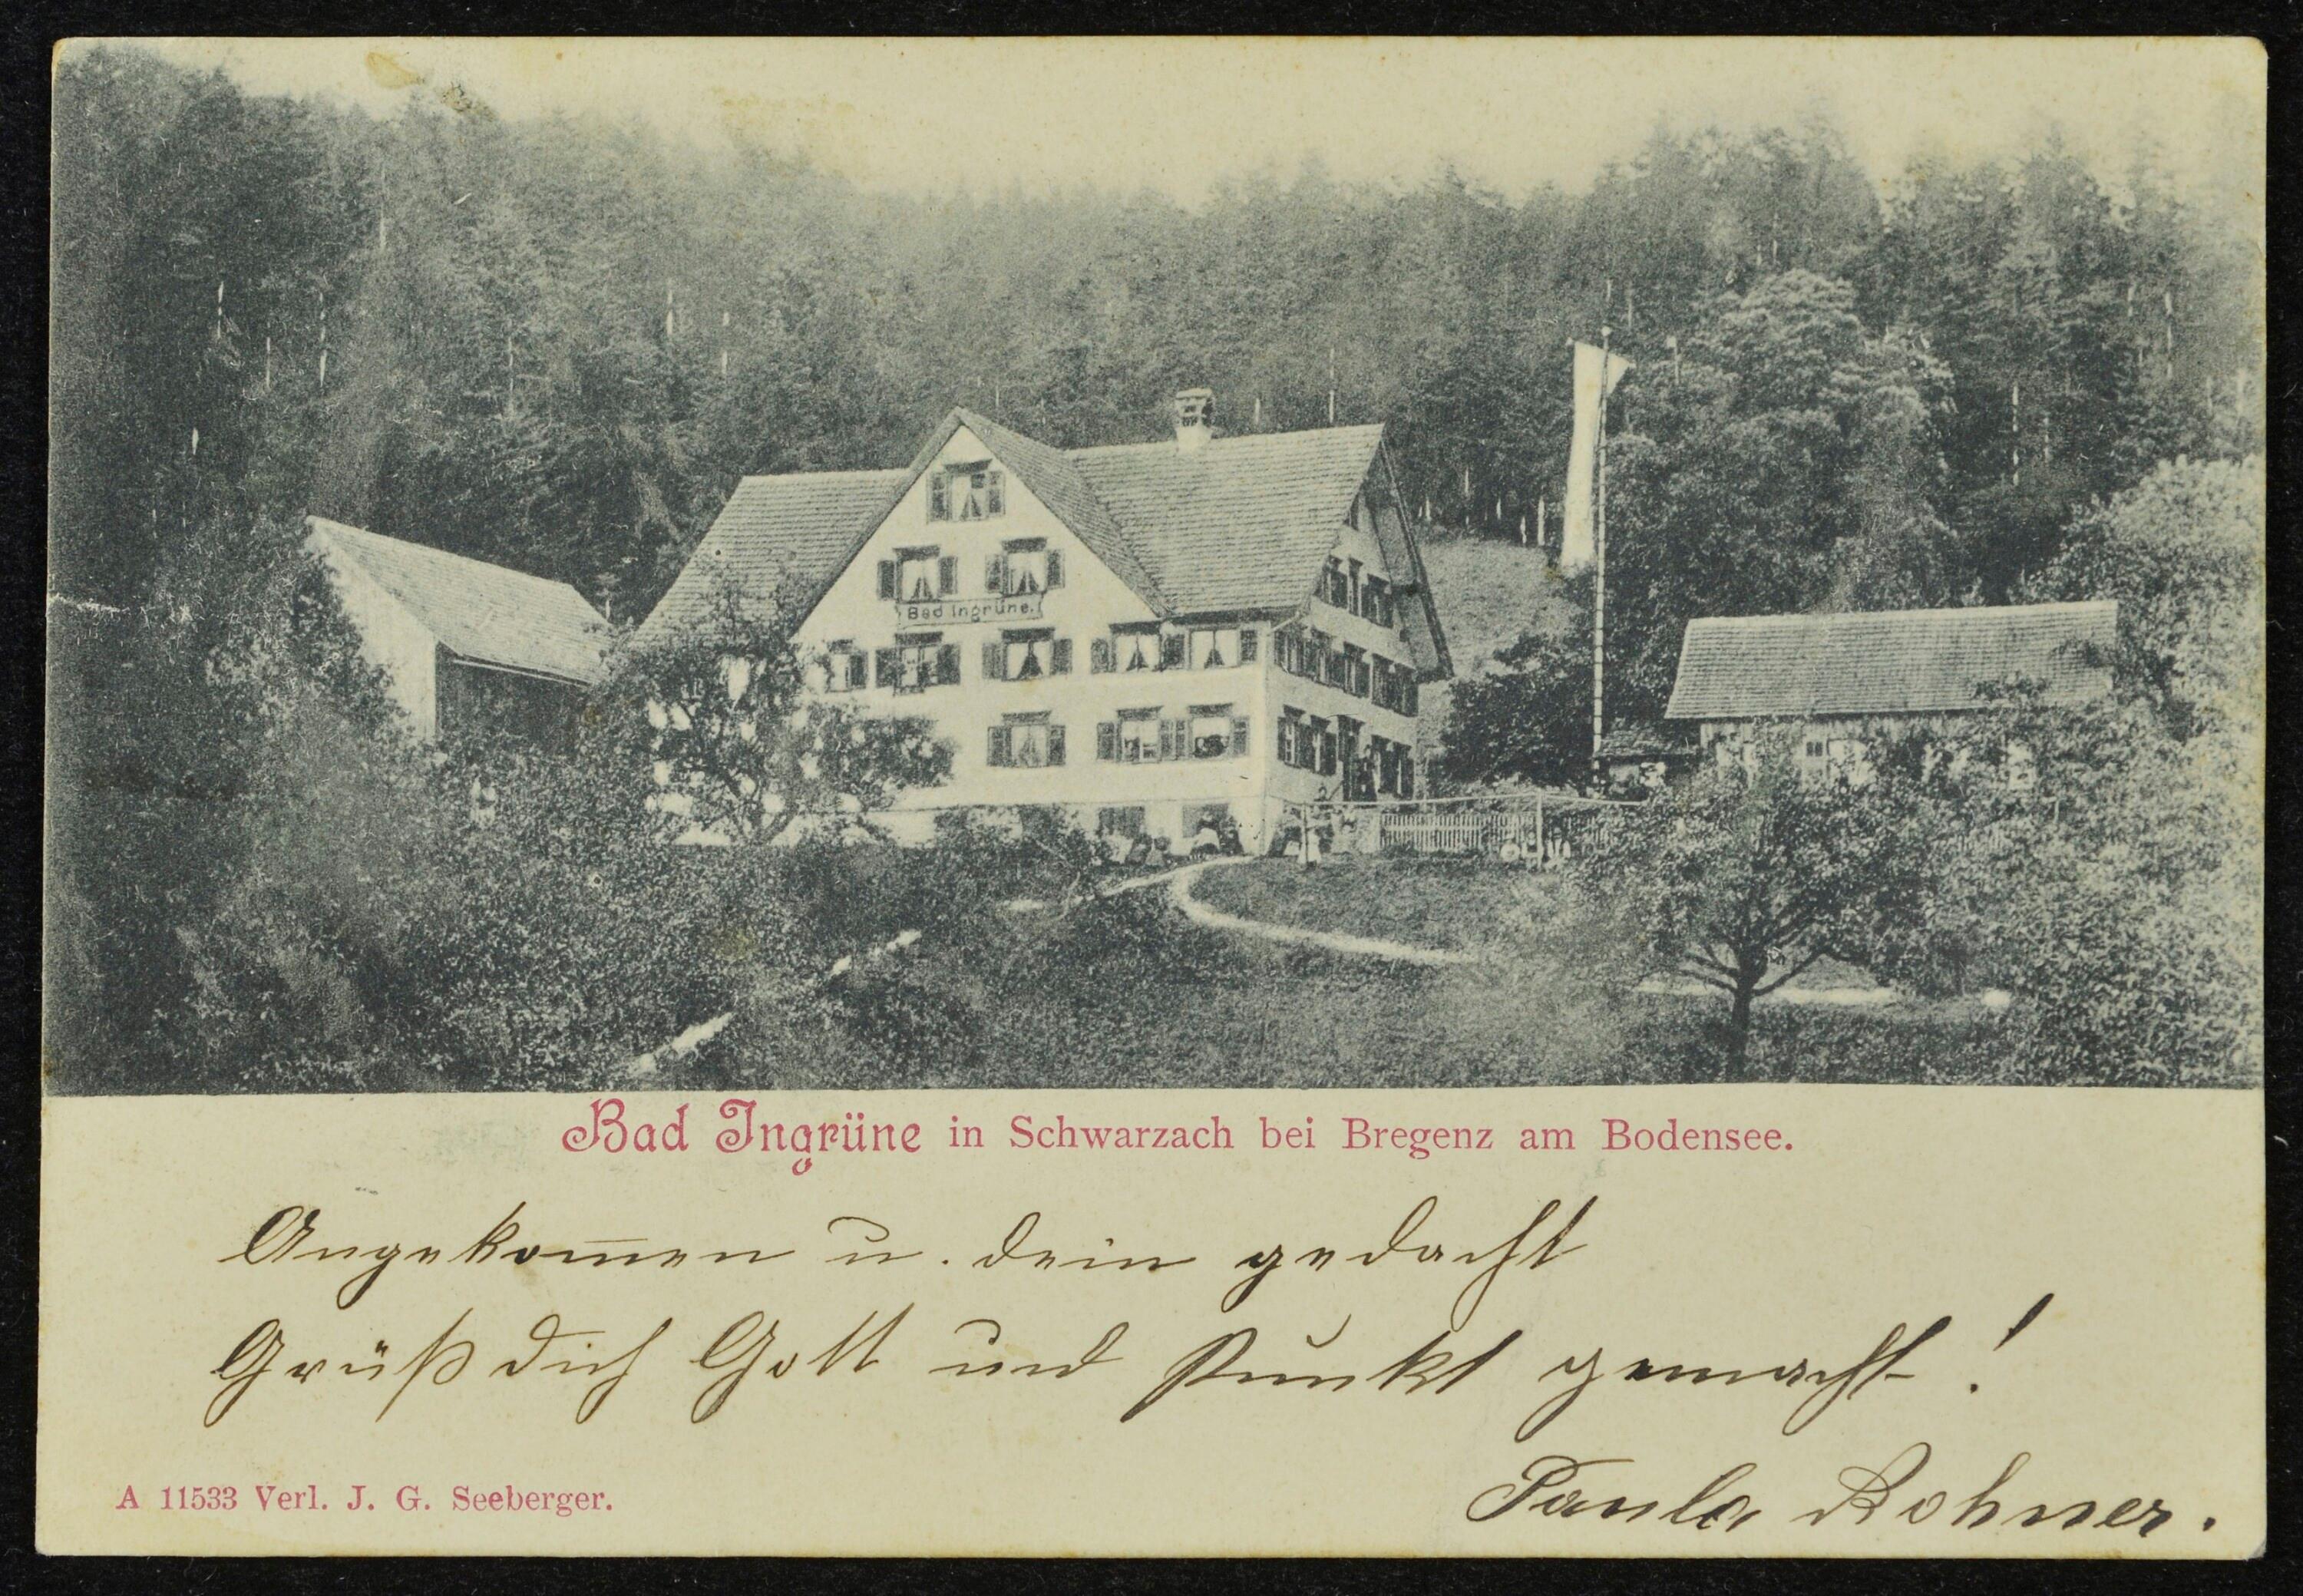 Bad Ingrüne.
Bad Ingrüne in Schwarzach bei Bregenz am Bodensee.
Angekom̅en u. dein gedacht
Grüß dich Gott und Punkt gemacht!
Paula Rohner.
A 11533 Verl. J. G. Seeberger.